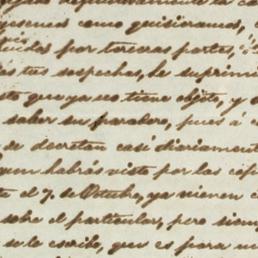 presenta como quisiéramos,
por terceras partes,
tus sospechas, he suprimi
que ya no tiene objeto, y
saber su paradero, pues á
se decretan casi diariamente
habrás visto por las copi
el 7 de Octubre, ya vienen
sobre el particular, pero siem
se le escribe, que es para